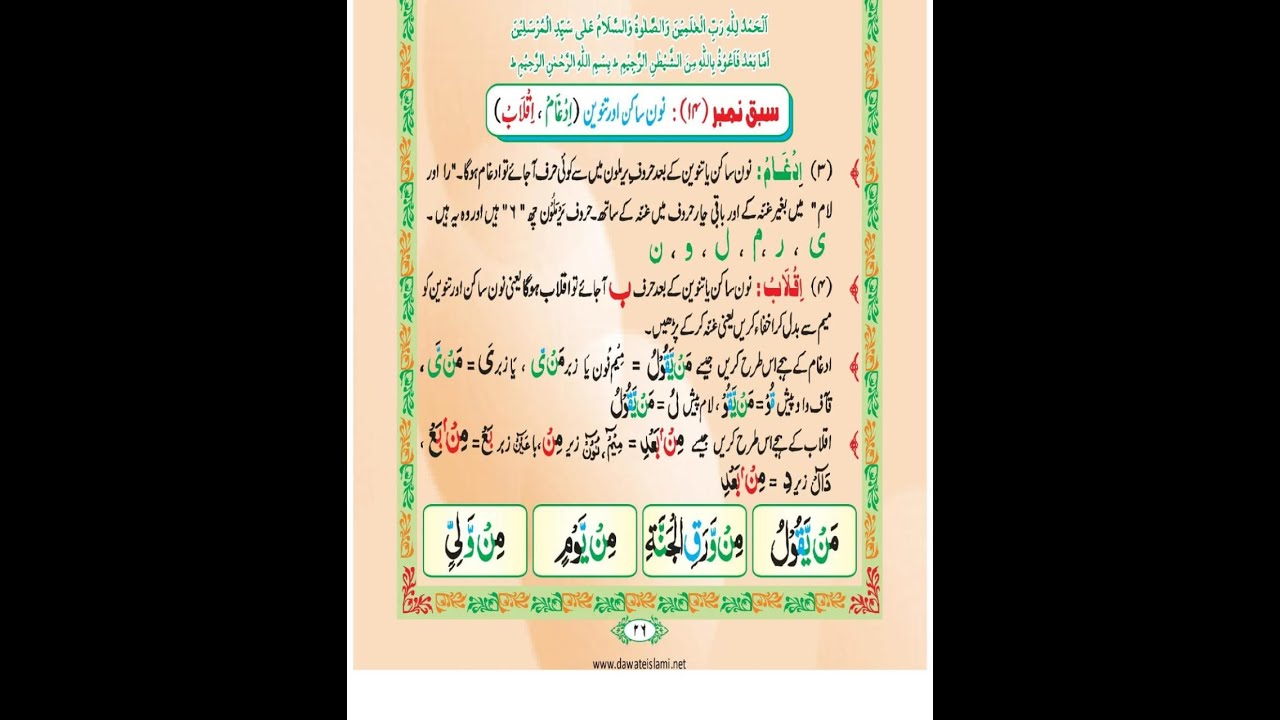 اَلْحَمْدُ لِلّٰهِ رَبِّ الْعٰلَمِیْنَ وَالصَّلٰوةُ وَالسَّلَامُ عَلٰی سَیِّدِ الْمُرْسَلِیْنَ
اَمَّا بَعْدُ فَاَعُوْذُ بِاللّٰهِ مِنَ الشَّیْطٰنِ الرَّجِیْمِ ط بِسْمِ اللّٰهِ الرَّحْمٰنِ الرَّحِیْمِ ط
سبق نمبر (۱۴) : نون ساکن اور تنوین (اِدْغَامْ ، اِقْلَابْ)
(۳) اِدْغَامْ : نون ساکن یا تنوین کے بعد حروفِ یرملون میں سے کوئی حرف آجائے تو ادغام ہوگا۔"را اور
لام" میں بغیر غنّہ کے اور باقی چار حروف میں غنّہ کے ساتھ۔حروف یَرْمَلُوْن چھ "۶" ہیں اور وہ یہ ہیں ۔
ی ، ر ، م ، ل ، و ، ن
(۴) اِقْلَابْ : نون ساکن یا تنوین کے بعد حرف ب آجائے تو اقلاب ہوگا یعنی نون ساکن اور تنوین کو
میم سے بدل کر اخفاء کریں یعنی غنّہ کر کے پڑھیں۔
ادغام کے ہجے اس طرح کریں جیسے مَنْ یَّقُوْلُ = مِیْم نُون یا زبر مَنْ یَّ ، یا زبر یَ = مَنْ یَّ ،
قآف واو پیش قُوْ = مَنْ یَّقُوْ ، لام پیش لُ = مَنْ یَّقُوْلُ
اقلاب کے ہجے اس طرح کریں جیسے مِنْۢ بَعْدِ = مِیْمْ ، نُوْنْ زیر مِنْ ، با عَیْنْ زبر بَعْ = مِنْۢ بَعْ ،
دَالْ زیر دِ = مِنْۢ بَعْدِ
مَنْ یَّقُوْلُ مِنْ وَّرَقِ الْجَنَّةِ مِنْ یَّوْمٍ مِنْ وَّلِیٍّ
۲۶
www.dawateislami.net